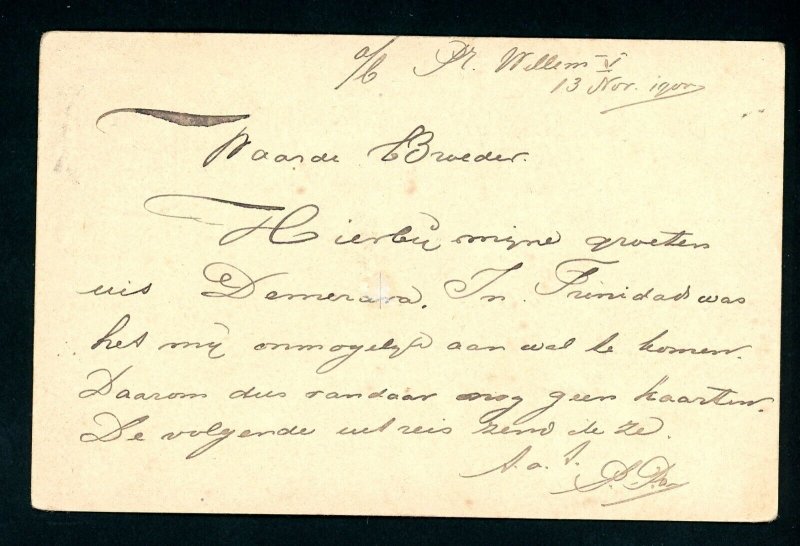 a/b Pr. Willem V
13 Nov. 1900
Waarde Broeder.
Hierbij mijne groeten
uit Demerara. In Trinidad was
het mij onmogelijk aan wal te komen.
Daarom dus vandaar nog geen kaarten.
De volgende uitreis zend ik ze.
t. a. t.